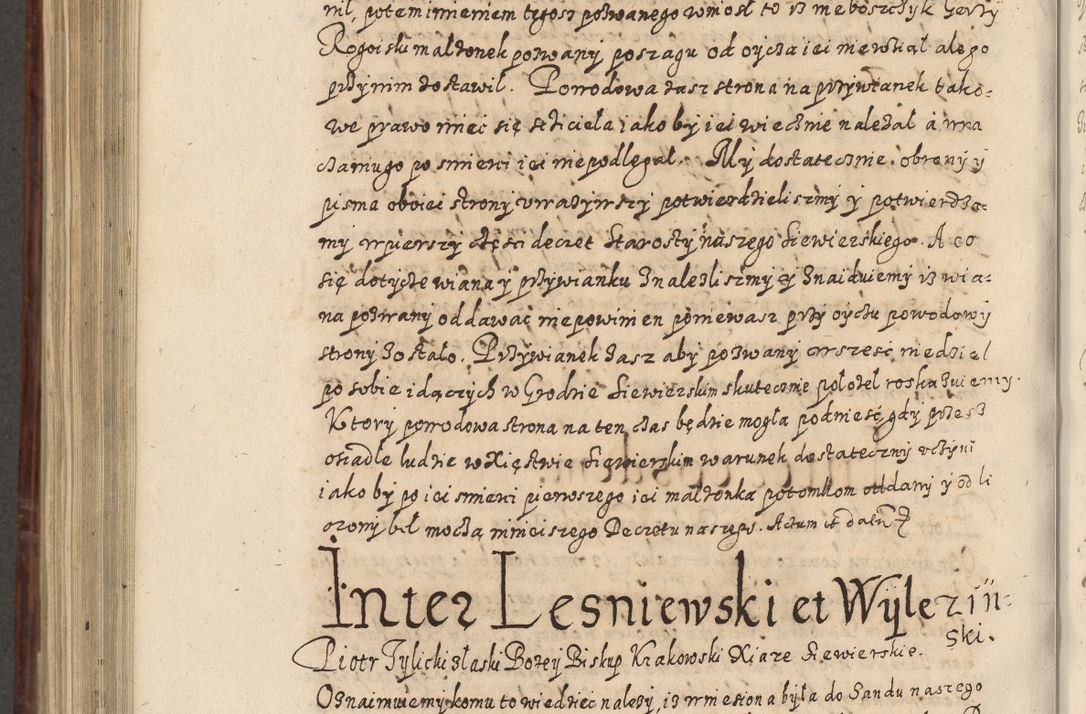 nil, potem imieniem tegosz pozwanego wniosł to iz nieboszczyk Gerzy
Rogoiski małzonek pozwany poszagu od oycza iei niewział ale go
przy nim zostawil. Powodowa zasz strona na przywianek tako-
we prawo miec się sciciela iakoby iei wiecznie nalezał a wra
czaniu go po smierci iei niepodlegał. My dostatecznie obrony y
pisma oboiei strony vwazywszy potwierdzieliszmy y potwierdza-
my wpierszy części decret Starosty naszego Siewierskiego. A co
się dotycze wiana y przywianku znalezliszmy y znaiduiemy iz wia-
na pozwany oddawac niepowinien poniewasz przy oyczu powodowy
strony zostało. Przywianek zasz aby pozwany wszesc niedziel
po sobie idączych w Grodzie Siewierskim skutecznie połozel roskazuiemy.
Ktory powodowa strona na ten czas będzie mogła podniesc, gdy przesz
osiadłe ludzie w Xięstwie Siewierskim warunek dostateczny vczyni
iakoby po iei smierci pierwszego iei małzonka potomkom oddany y odli
czony bił moczą ninieiszego Decretu naszego. Actum et datum
Inter Lesniewski et Wylezin-
ski.
Piotr Tylicki z łaski Bozey Biskup Krakowski Xiaze Siewierskie.
Oznaimuiemy komu to wiedziec nalezy, iz wniesiona była do Sandu naszego